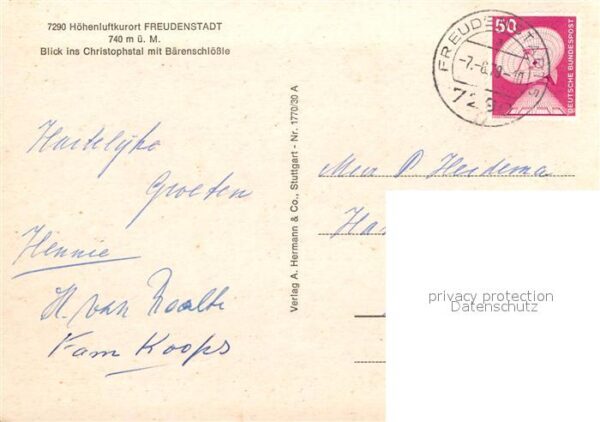 7290 Höhenluftkurort FREUDENSTADT
740 m ü. M.
Blick ins Christophstal mit Bärenschlößle
Hartelijke
Groeten
Hennie
H. van Raalte
Fam Koops
Verlag A. Hermann & Co., Stuttgart - Nr. 1770/30 A
50
DEUTSCHE BUNDESPOST
FREUDENSTADT
7290
Heidema
privacy protection
Datenschutz